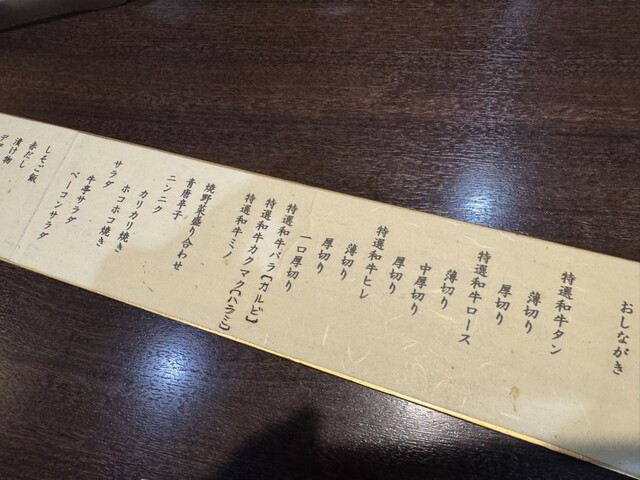 おしながき
特選和牛タン
薄切り
厚切り
特選和牛ロース
薄切り
中厚切り
厚切り
特選和牛ヒレ
薄切り
厚切り
一口厚切り
特選和牛バラ〔カルビ〕
特選和牛カク マク〔ハラミ〕
特選和牛ミノ
焼野菜盛り合わせ
青唐辛子
ニンニク
カリカリ焼き
ホコホコ焼き
サラダ
牛亭サラダ
ベーコンサラダ
しそご飯
赤だし
漬け物
デ